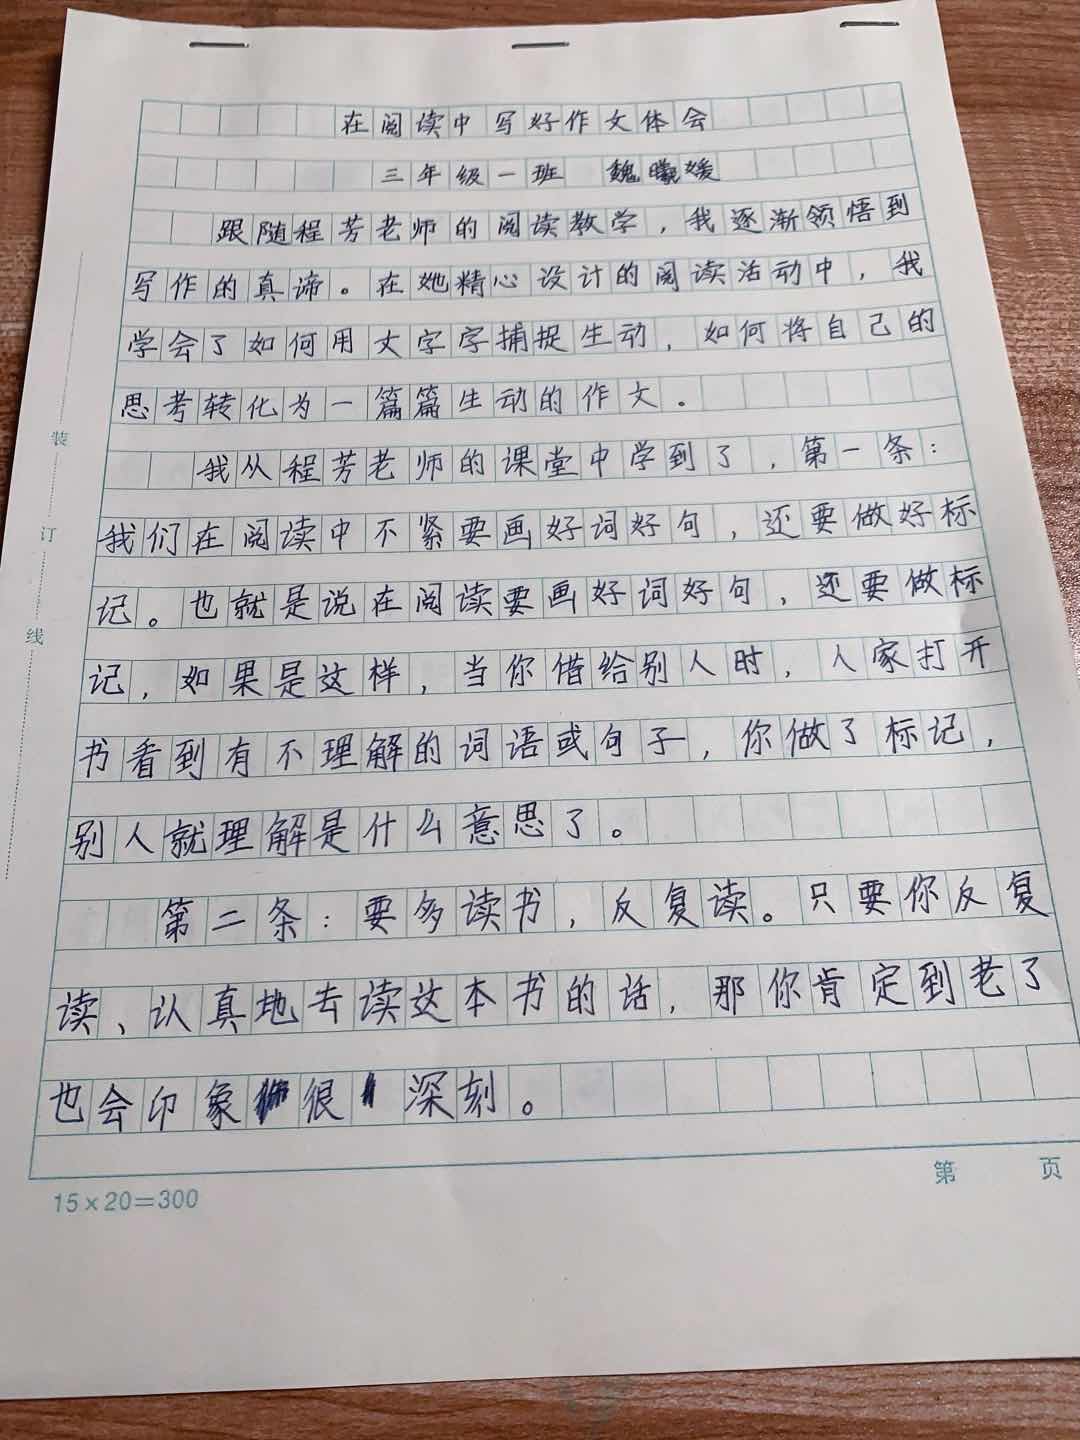 在阅读中写好作文体会
三年级一班 魏曦媛
跟随程芳老师的阅读教学，我逐渐领悟到
写作的真谛。在她精心设计的阅读活动中，我
学会了如何用文字字捕捉生动，如何将自己的
思考转化为一篇篇生动的作文。
我从程芳老师的课堂中学到了，第一条：
我们在阅读中不紧要画好词好句，还要做好标
记。也就是说在阅读要画好词好句，还要做标
记，如果是这样，当你借给别人时，人家打开
书看到有不理解的词语或句子，你做了标记，
别人就理解是什么意思了。
第二条：要多读书，反复读。只要你反复
读、认真地去读这本书的话，那你肯定到老了
也会印象很深刻。
装
订
线
15×20=300
第 页